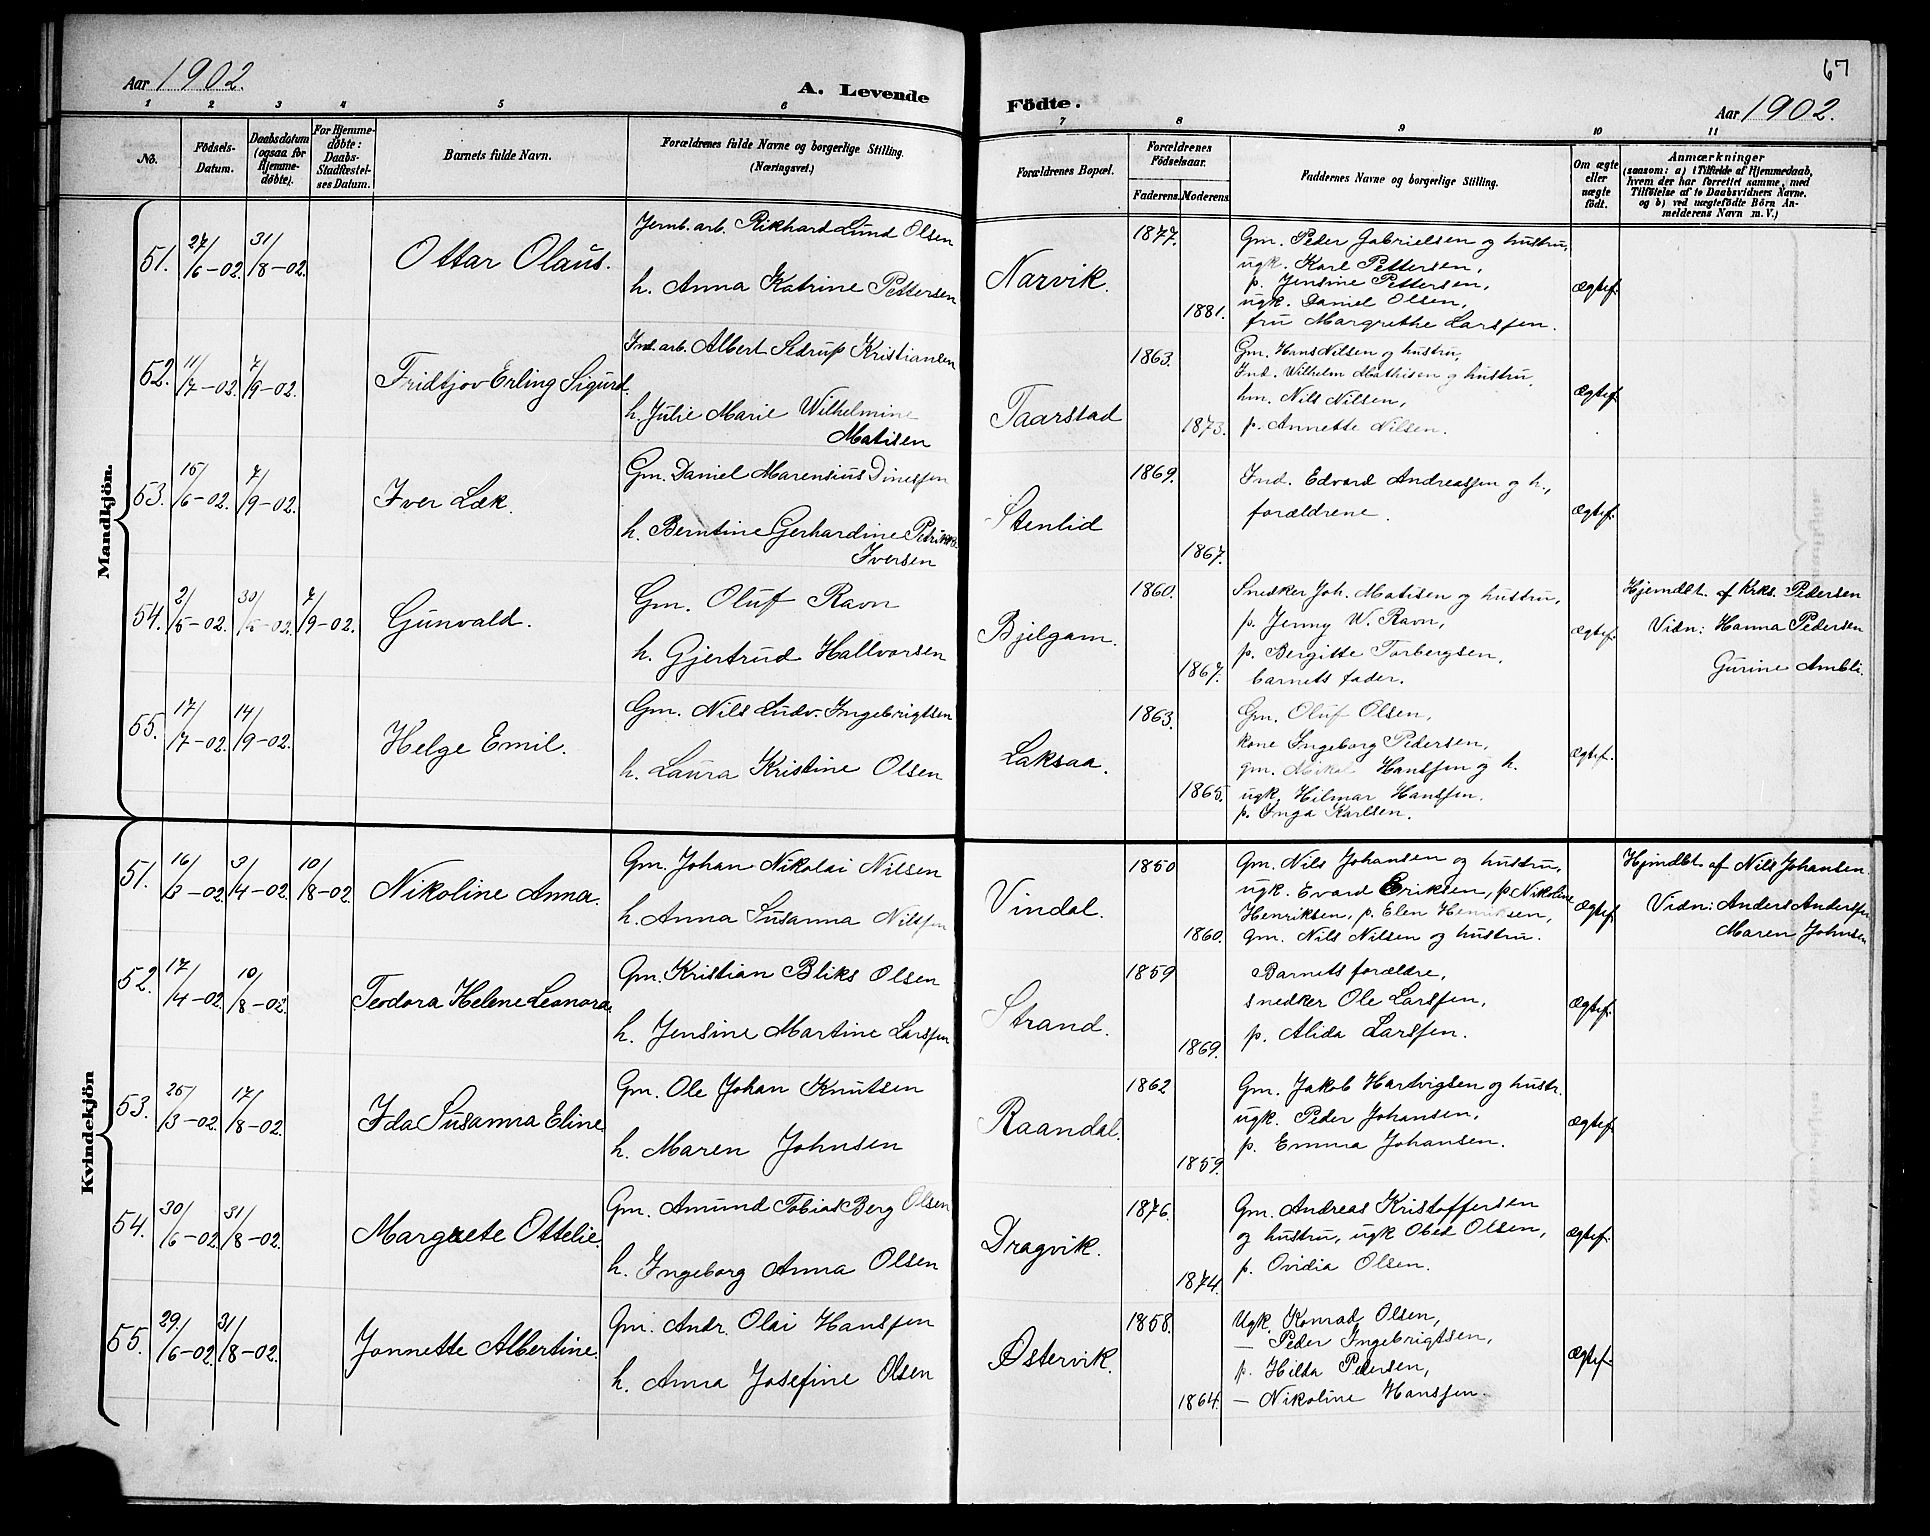 Aar 1902.
A. Levende
Födte.
67
Aar 1902.
1 2 3 4 5 6 7 8 9 10 11
No.
Födsels-
Datum.
Daabsdatum
(ogsaa for
Hjemme-
döbte).
For Hjemme-
döbte:
Daabs-
Stadfæstel-
ses Datum.
Barnets fulde Navn.
Forældrenes fulde Navne og borgerlige Stilling.
(Næringsvei.)
Forældrenes Bopæl.
Forældrenes
Födselsaar.
Faderens. Moderens.
Faddernes Navne og borgerlige Stilling.
Om ægte
eller
uægte
födt.
Anmærkninger
(saasom: a) i Tilfælde af Hjemmedaab,
hvem der har forrettet samme, med
Tilföielse af to Daabsvidners Navne.
og b) ved uægtefödte Börn An-
melderens Navn m. V.)
Mandkjön.
51. 27/6-02. 31/8-02. Ottar Olaus.
Jernb. arb. Rikhard Lund Olsen
h. Anna Katrine Pettersen
Narvik.
1877.
1881.
Gm. Peder Gabrielsen og hustru,
ugk. Karl Pettersen,
p. Jensine Pettersen,
ugk. Daniel Olsen,
fru Margrethe Larssen.
Ægtef.
52. 11/7-02. 7/9-02. Fridtjov Erling Sigurd.
Ind. arb. Albert Sedrup Kristiansen
h. Julie Marie Wilhelmine
Matisen
Taarstad
1863.
1873.
Gm. Hans Nilsen og hustru,
Ind. Wilhelm Mathisen og hustru,
hm. Nils Nilsen,
p. Annette Nilsen.
Ægtef.
53. 15/6-02. 7/9-02. Iver Læk.
Gm. Daniel Marensius Dinessen
h. Berntine Gerhardine
Iversen
Stenlid
1869.
1867.
Ind. Edvard Andreassen og h.,
forældrene.
Ægtef.
54. 2/5-02. 30/5-02. 7/9-02. Gunvald.
Gm. Oluf Ravn
h. Gjertrud Hallvorsen
Bjelgam.
1860.
1867.
Snedker Joh. Matisen og hustru,
p. Jenny W. Ravn,
p. Bergitte Torbergsen,
barnets fader.
Ægtef.
Hjemdbt. af Krks. Pedersen
Vidn: Hanna Pedersen
Gurine Ambli.
55. 17/7-02. 14/9-02. Helge Emil.
Gm. Nils Ludv. Ingebrigtsen
h. Laura Kristine Olsen
Laksaa.
1863.
1865.
Gm. Oluf Olsen,
kone Ingeborg Pedersen,
gm. Mikal Hanssen og h.
ugk. Hilmar Hanssen.
p. Inga Karlsen.
Ægtef.
Kvindekjön
51. 16/3-02. 3/4-02. 10/8-02. Nikoline Anna.
Gm. Johan Nikolai Nilsen
h. Anna Susanna Nilssen
Vindal.
1850
1860.
Gm. Nils Johansen og hustru,
ugk. Evard Eriksen, p. Nikoline
Henriksen, p. Elen Henriksen,
gm. Nils Nilsen og hustru.
Ægtef.
Hjmdbt. af Nils Johansen
Vidn: Anders Anderssen
Maren Johnsen
52. 17/4-02. 10/8-02. Teodora Helene Leonora.
Gm. Kristian Bliks Olsen
h. Jensine Martine Larssen
Strand.
1859
1869.
Barnets forældre,
snedker Ole Larssen,
p. Alida Larssen.
Ægtef.
53. 25/3-02. 17/8-02. Ida Susanna Eline
Gm. Ole Johan Knutsen
h. Maren Johnsen
Raandal.
1862
1859.
Gm. Jakob Hartvigsen og hustr.
ugk. Peder Johansen,
p. Emma Johansen.
Ægtef.
54. 30/6-02. 31/8-02. Margrete Ottelie.
Gm. Amund Tobias Berg Olsen
h. Ingeborg Anna Olsen
Dragvik.
1876.
1874.
Gm. Andreas Kristoffersen
og hustru, ugk Obed Olsen,
p. Ovidia Olsen.
Ægtef.
55. 29/6-02. 31/8-02. Jonnette Albertine.
Gm. Andr. Olai Hanssen
h. Anna Josefine Olsen
Østervik.
1858.
1864.
Ugk. Konrad Olsen,
— Peder Ingebrigtsen,
p. Hilda Pedersen,
— Nikoline Hanssen.
Ægtef.